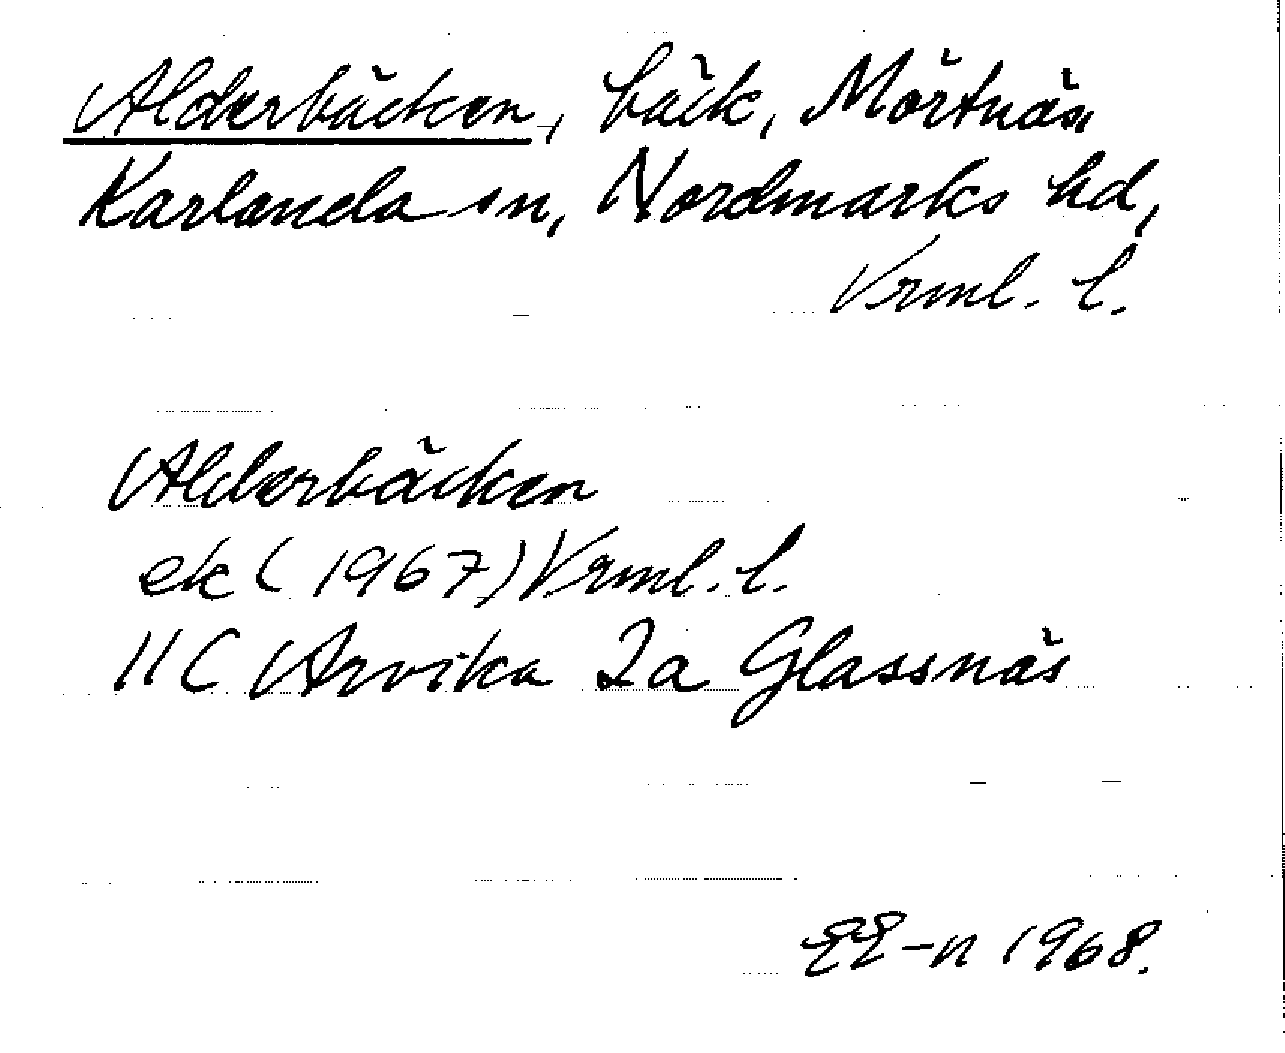 Alderbäcken, bäck, Mörtnäs
Karlanda sn, Nordmarks hd,
Vrml. l.
Alderbäcken
ek (1967) Vrml. l.
11C Arvika 2a Glassnäs
EE-n 1968.